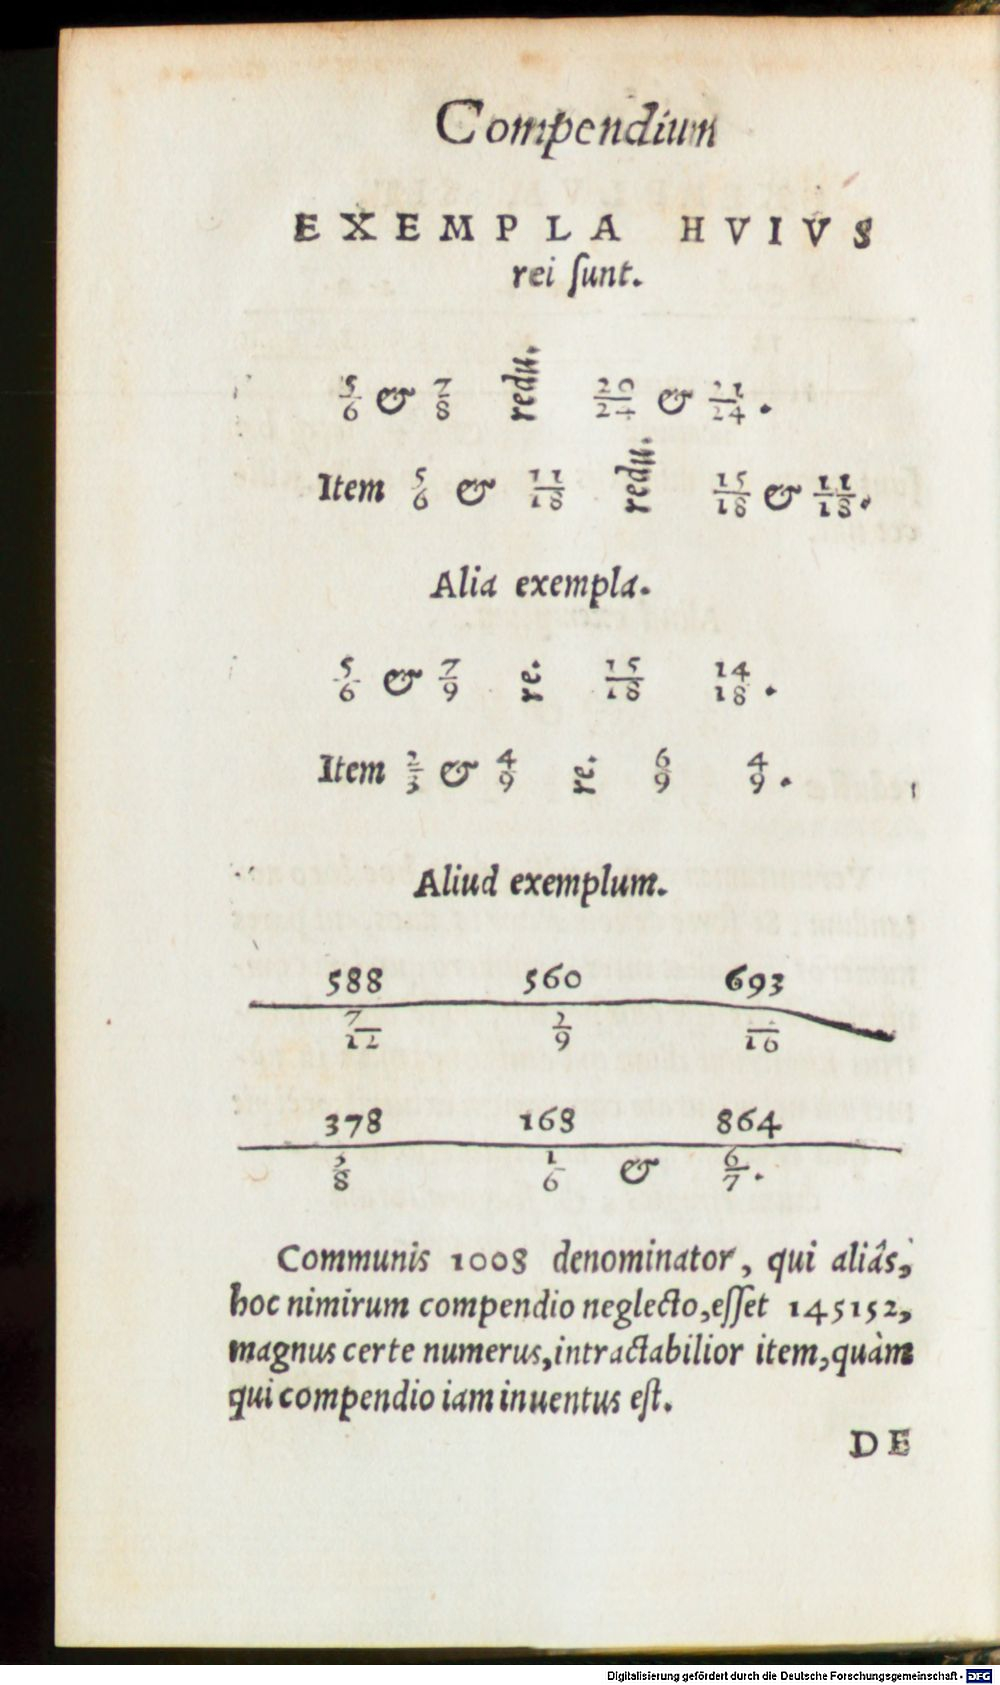 Compendium
EXEMPLA HVIVS
rei ſunt.
5/6 & 7/8 redu. 20/24 & 21/24.
Item 5/6 & 11/18 redu. 15/18 & 11/18.
Alia exempla.
5/6 & 7/9 re. 15/18 14/18.
Item 2/3 & 4/9 re. 6/9 4/9.
Aliud exemplum.
588 560 693
7/12 /9 /16
378 168 864
3/8 1/6 & 6/7.
Communis 1008 denominator, qui aliâs,
hoc nimirum compendio neglecto, eſſet 145152,
magnus certe numerus, intractabilior item, quàm
qui compendio iam inuentus eſt.
DE
Digitalisierung gefördert durch die Deutsche Forschungsgemeinschaft - DFG